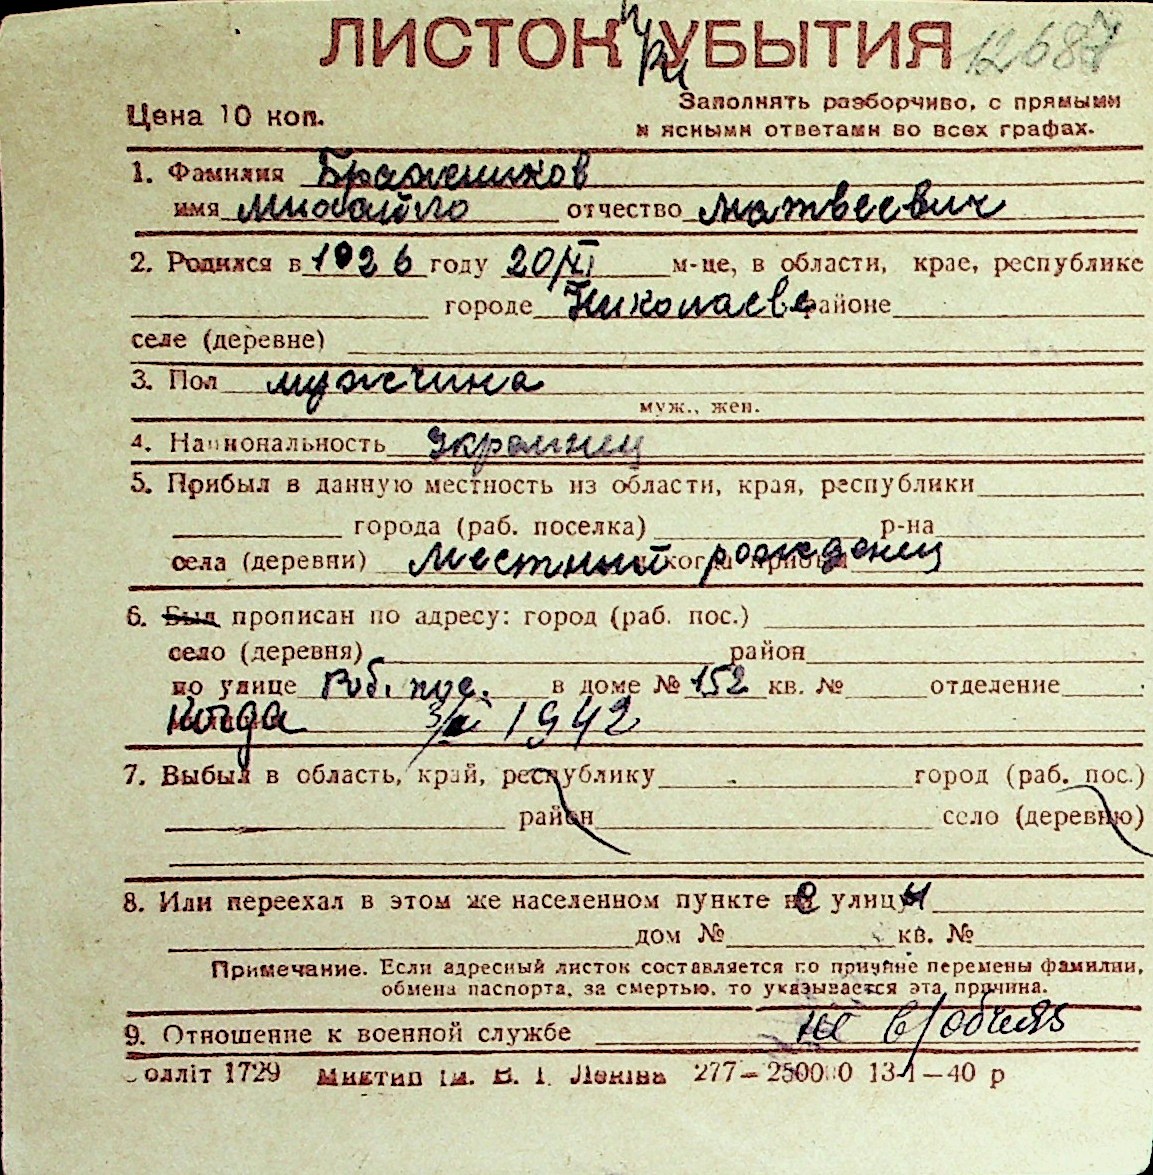 ЛИСТОК при УБЫТИЯ 12687
Цена 10 коп.
Заполнять разборчиво, с прямыми
и ясными ответами во всех графах.
1. Фамилия Бражников
имя Михайло отчество Матвеевич
2. Родился в 1926 году 20/XI м-це, в области, крае, республике
городе Николаеве районе
селе (деревне)
3. Пол мужчина
муж., жен.
4. Национальность украинец
5. Прибыл в данную местность из области, края, республики
города (раб. поселка) р-на
села (деревни) местный рожденец
6. Был прописан по адресу: город (раб. пос.)
село (деревня) район
по улице Раб. пос. в доме № 152 кв. № отделение
Когда 1942
7. Выбыл в область, край, республику город (раб. пос.)
район село (деревню)
8. Или переехал в этом же населенном пункте с улицы
дом № кв. №
Примечание. Если адресный листок составляется по причине перемены фамилии,
обмена паспорта, за смертью, то указывается эта причина.
9. Отношение к военной службе не в/обяз
олліт 1729 277—250000 13-1—40 р